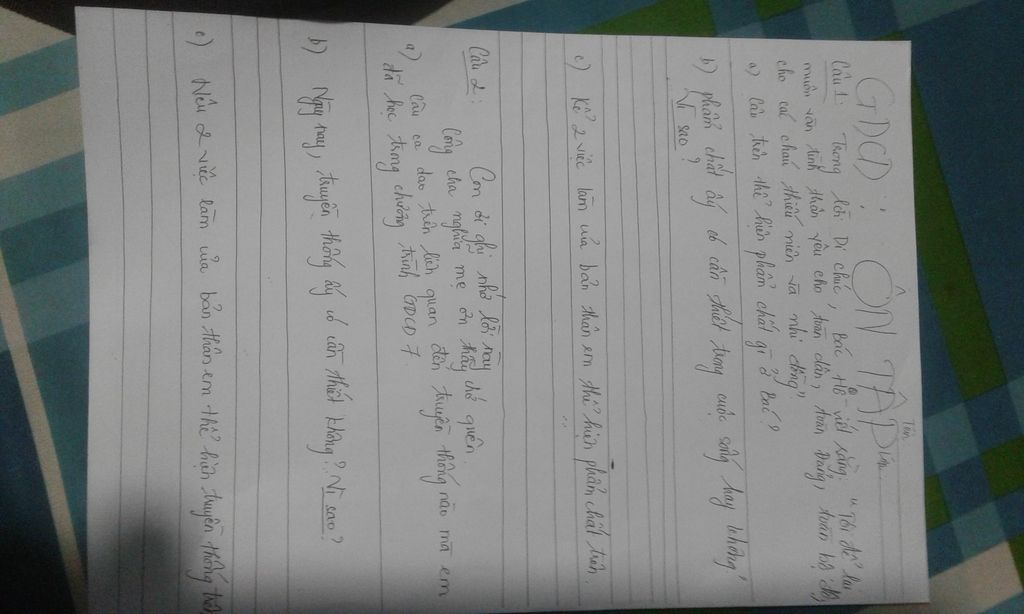 GDCD: ÔN TẬP
Câu 1: Trong lời Di chúc, Bác Hồ viết rằng: "Tôi để lại
muôn vàn tình thân yêu cho toàn dân, toàn Đảng, toàn bộ đội,
cho các cháu thiếu niên và nhi đồng"
a) Câu trên thể hiện phẩm chất gì ở Bác?
b) phẩm chất ấy có cần thiết trong cuộc sống hay không?
Vì sao?
c) Kể 2 việc làm của bản thân em thể hiện phẩm chất trên.
Câu 2: Con ơi ghi nhớ lời này
Công cha nghĩa mẹ ơn thầy chớ quên.
a) Câu ca dao trên liên quan đến truyền thống nào mà em
đã học trong chương trình GDCD 7.
b) Ngày nay, truyền thống ấy có cần thiết không? Vì sao?
c) Nêu 2 việc làm của bản thân em thể hiện truyền thống trên